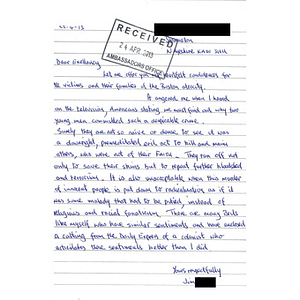 22-4-13
RECEIVED
24 APR 2013
AMBASSADORS OFFICE
Dear Excellency
Let me offer you my heartfelt condolences for
the victims and their families of the Boston atrocity.
It angered me when I heard
on the television, Americans stating we must find out why two
young men committed such a despicable crime.
Surely they are not so naive or dense to see it was
a downright, premeditated evil act to kill and maim
others, was not out of fear. They ran off not
only to save their skins but to repeat further bloodshed
and terrorism. It is also unacceptable when this murder
of innocent people is put down to radicalisation as if it
was some malady that had to be pitied, instead of
religious and racial fanaticism. There are many Brits
like myself who have similar sentiments and have enclosed
a cutting from the Daily Express of a columist who
articulates these sentiments better than I did
Yours respectfully
Jim